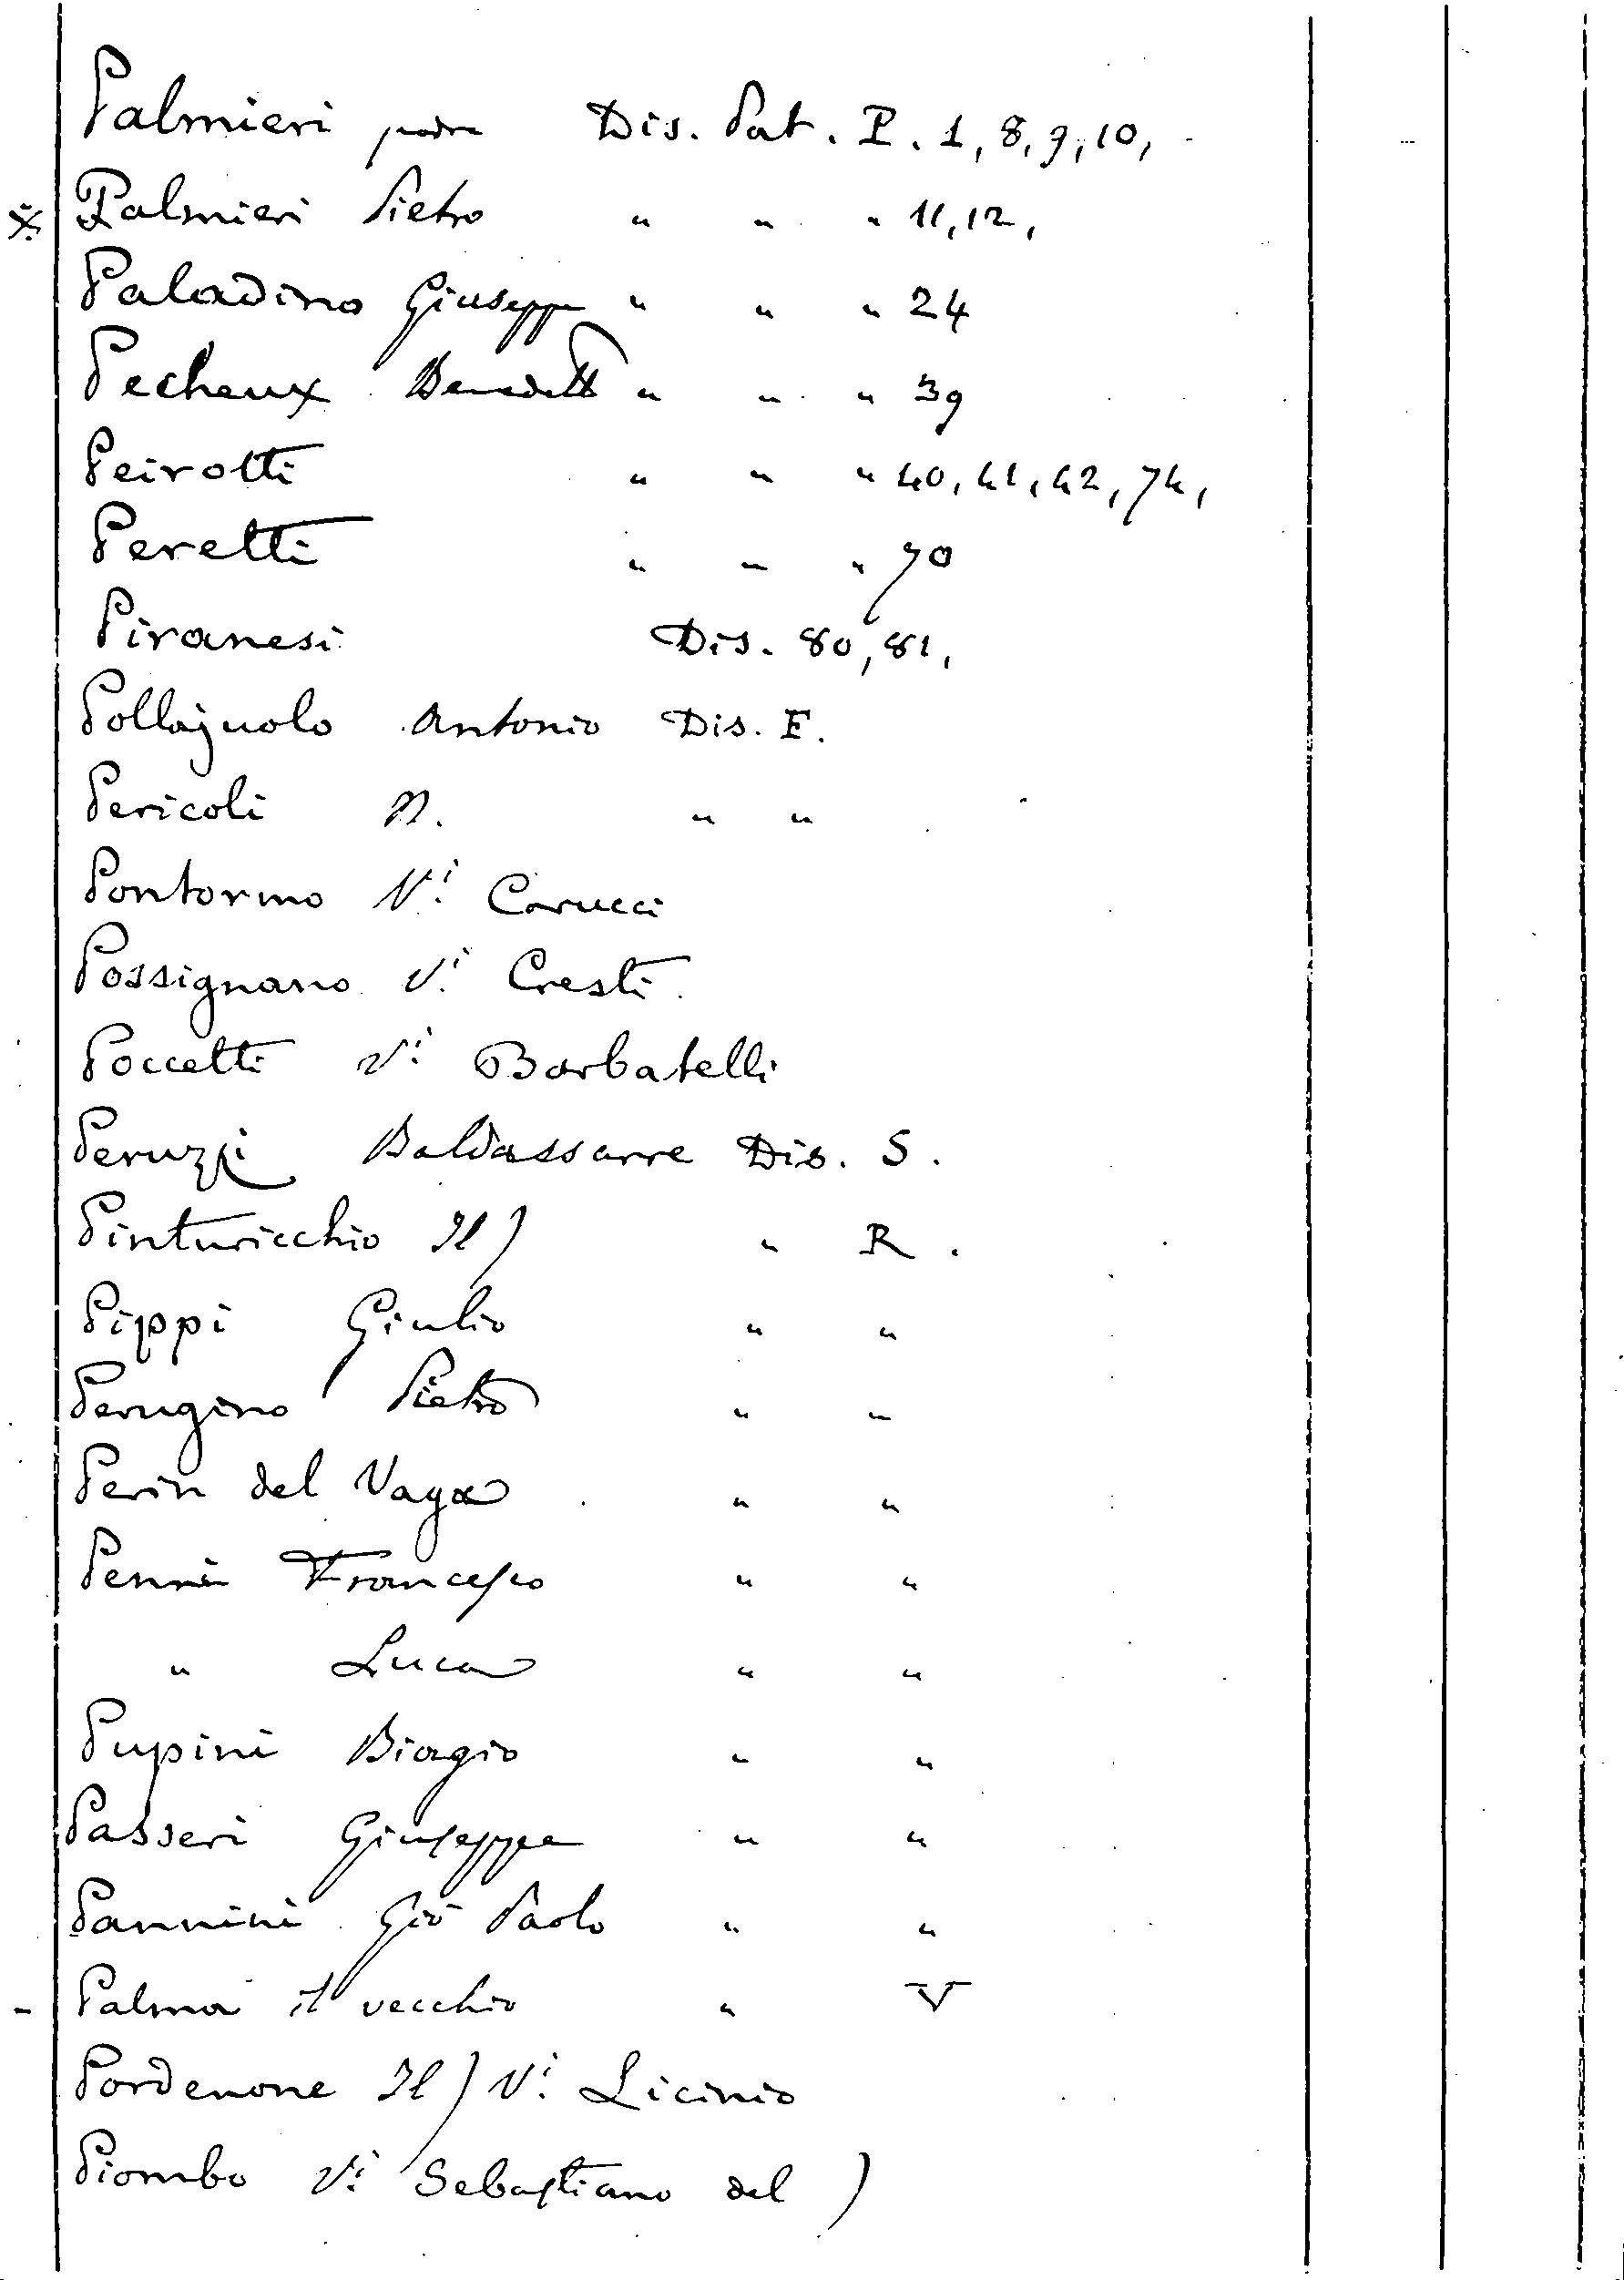 Palmieri padre Dis. Pat. P. 1, 8, 9, 10,
※ Palmieri Pietro " " " 11, 12,
Paladino Giuseppe " " " 24
Pecheux Benedetto " " " 39
Peirotti " " " 40, 41, 42, 74,
Peretti " " " 70
Piranesi Dis. 80, 81,
Pollajuolo Antonio Dis. F.
Pericoli N. " "
Pontormo Vi. Carucci
Possignano Vi. Cresti
Poccetti Vi. Barbatelli
Peruzzi Baldassarre Dis. S.
Pinturicchio Il) " R.
Pippi Giulio " "
Perugino Pietro " "
Perin del Vaga " "
Penni Francesco " "
" Luca " "
Pupini Biagio " "
Passeri Giuseppe " "
Pannini Gio Paolo " "
- Palma il vecchio " V
Pordenone Il) Vi. Licinio
Piombo Vi. Sebastiano del)